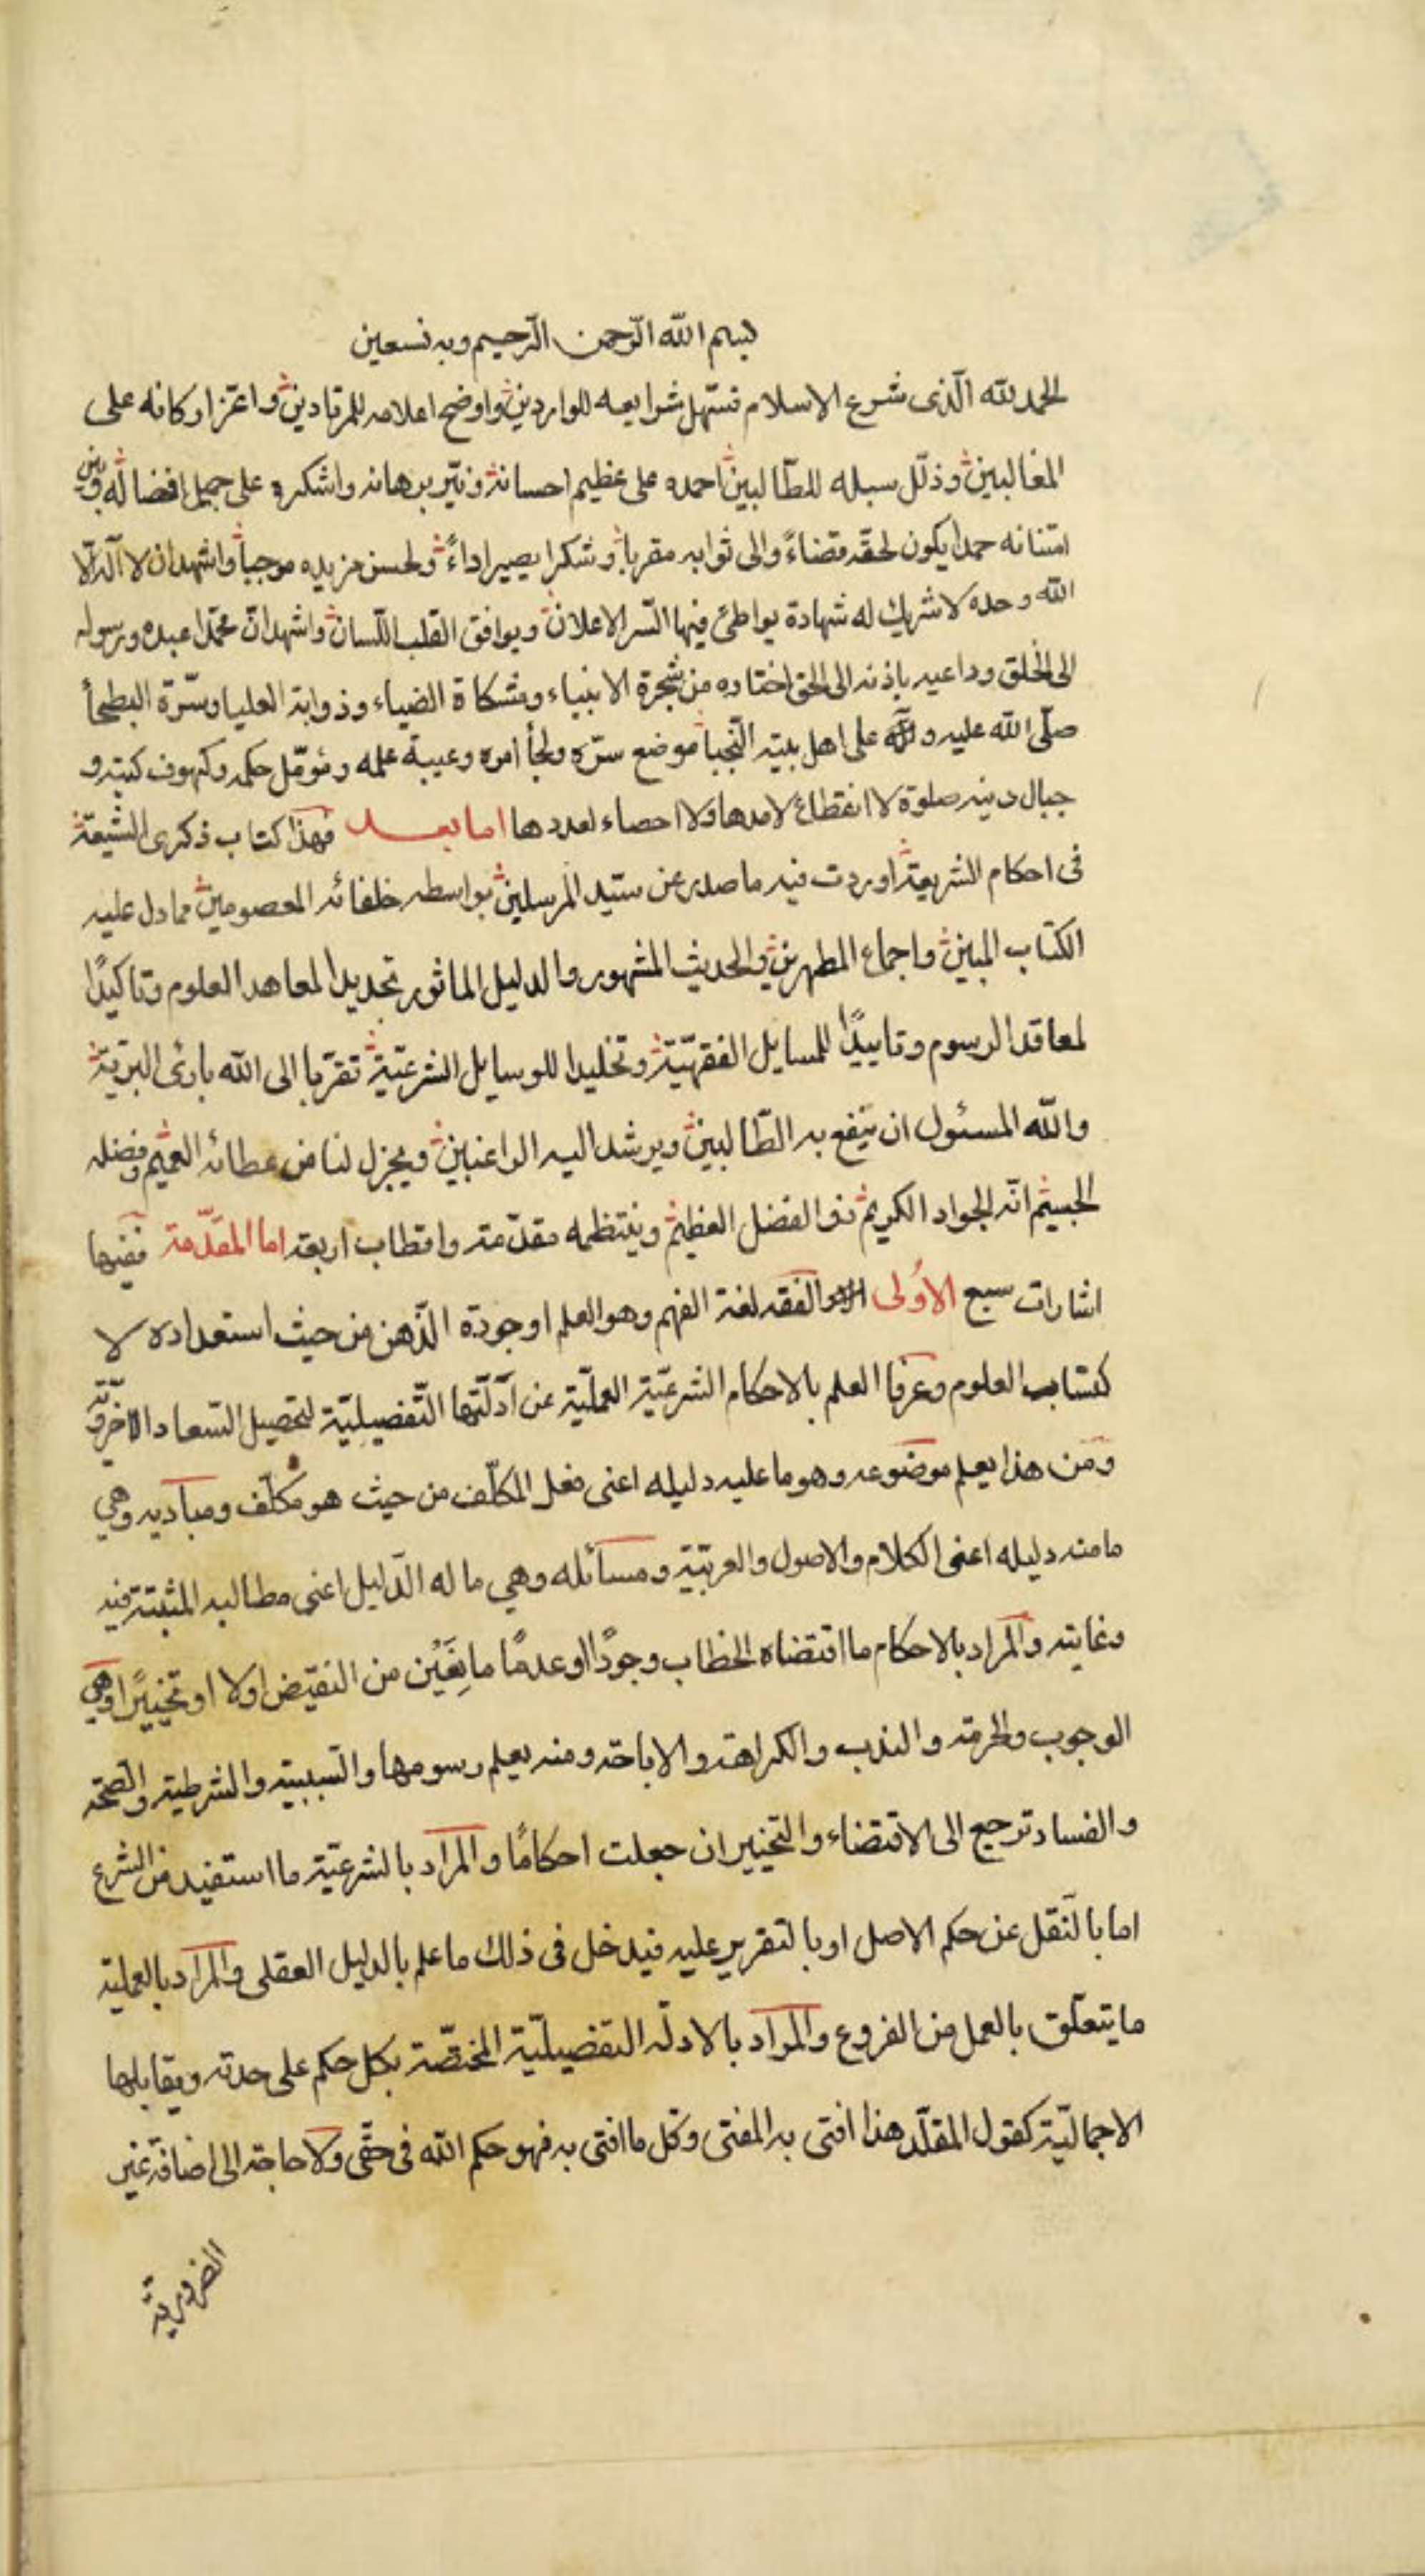 بسم الله الرّحمن الرّحيم وبه نستعين
الحمد لله الّذى شرع الاسلام فسهل شرايعه للواردين واوضح اعلامه للمرتادين واعز اركانه على
المغالبين وذلّل سبله للطّالبين احمده على عظيم احسانه ونيّر برهانه واشكره على جميل افضاله و
امتنانه حمدا يكون لحقّه قضاءً والى ثوابه مقربا وشكرا يصير اداءً ولحسن مزيده موجبا واشهد ان لا آله الّا
الله وحده لا شريك له شهادة يواطئ فيها السّر الاعلان ويوافق القلب اللّسان واشهد انّ محمّدا عبده ورسوله
الى الخلق وداعيه باذنه الى الحق اختاره من شجرة الانبياء ومشكاة الضياء وذوابة العليا وسرّة البطحأ
صلّى الله عليه و على اهل بيته النّجبا موضع سرّه ولجأ امره وعيبة علمه وموئل حكمه وكهوف كتبه و
جبال دينه صلوة لا انقطاع لامدها ولا احصاء لعددها اما بعد فهذا كتاب ذكرى الشيعة
فى احكام الشريعة اوردت فيه ما صدر عن سيّد المرسلين بواسطه خلفائه المعصومين مما دل عليه
الكتاب المبين واجماع المطهرين والحديث المشهور والدليل الماثور تجديدا لمعاهد العلوم وتاكيدًا
لمعاقد الرسوم وتاييدًا للمسايل الفقهيّة وتخليدا للوسايل الشرعيّة تقرّبا الى الله بارئ البريّة
والله المسئول ان ينفع به الطّالبين ويرشد اليه الراغبين ويجزل لنا من عطائه العميم وفضله
الجسيم انّه الجواد الكريم ذو الفضل العظيم وينتظمه مقدّمة واقطاب اربعة اما المقدّمة ففيها
اشارات سبع الاولى الفقه لغة الفهم وهو العلم او جودة الذّهن من حيث استعداده لا
كتساب العلوم وعرفا العلم بالاحكام الشرعيّة العمليّة عن ادلّتها التّفصيليّة لتحصيل السّعادة الاخرويّة
ومن هذا يعلم موضوعه وهو ما عليه دليله اعنى فعل المكلّف من حيث هو مكلّف ومباديه وهي
ما منه دليله اعنى الكلام والاصول والعربيّة ومسائله وهي ما له الدّليل اعنى مطالبه المثبتة فيه
وغايته والمراد بالاحكام ما اقتضاه الخطاب وجودًا او عدمًا مانِعَيْن من النقيض اولا او تخييرًا وهي
الوجوب والحرمة والندب والكراهة والاباحة ومنه يعلم رسومها والسّببيّة والشرطية والصّحة
والفساد ترجع الى الاقتضاء والتخيير ان جعلت احكامًا والمراد بالشرعيّة ما استفيد من الشرع
اما بالنّقل عن حكم الاصل او بالتقرير عليه فيدخل فى ذلك ما علم بالدليل العقلى والمراد بالعملية
ما يتعلّق بالعمل من الفروع والمراد بالادلّه التفضيليّة المختصّة بكل حكم على حدته ويقابلها
الاجماليّة كقول المقلّد هذا افتى به المفتى وكل ما افتى به فهو حكم الله فى حقّى ولا حاجة الى اضافة غير
الضرورية